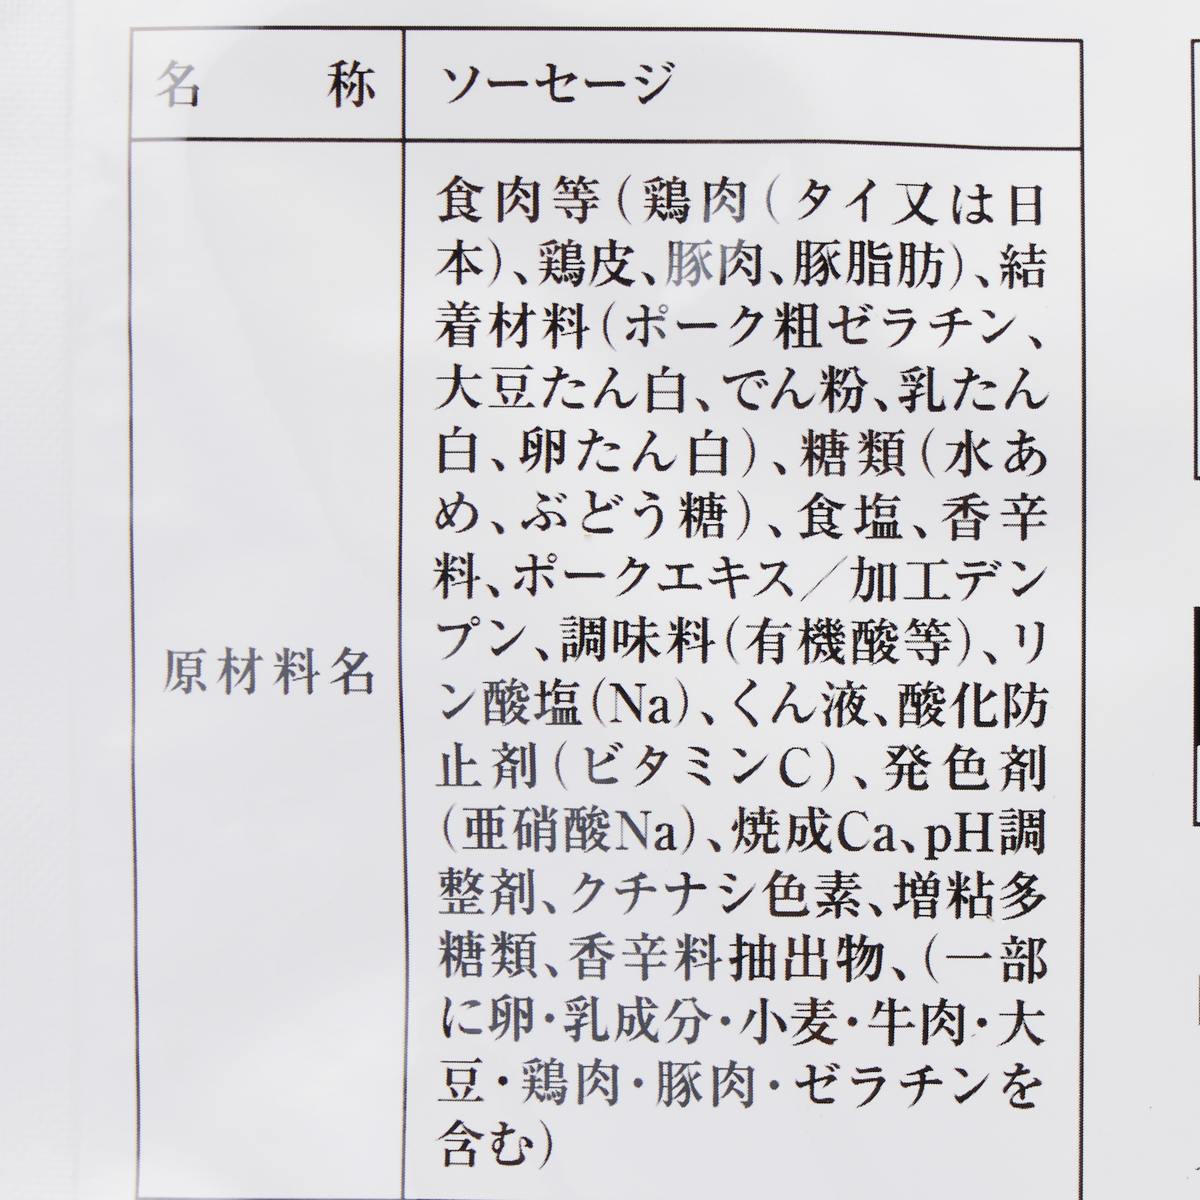 名称 ソーセージ
原材料名
食肉等(鶏肉(タイ又は日
本)、鶏皮、豚肉、豚脂肪)、結
着材料(ポーク粗ゼラチン、
大豆たん白、でん粉、乳たん
白、卵たん白)、糖類(水あ
め、ぶどう糖)、食塩、香辛
料、ポークエキス／加工デン
プン、調味料(有機酸等)、リ
ン酸塩(Na)、くん液、酸化防
止剤(ビタミンC)、発色剤
(亜硝酸Na)、焼成Ca、pH調
整剤、クチナシ色素、増粘多
糖類、香辛料抽出物、(一部
に卵・乳成分・小麦・牛肉・大
豆・鶏肉・豚肉・ゼラチンを
含む)